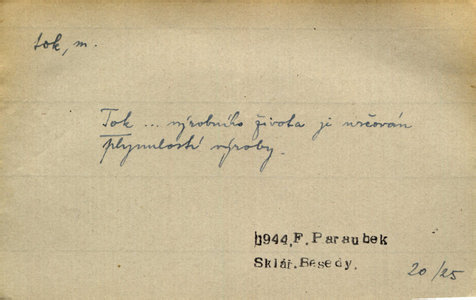 tok, m.
Tok ... výrobního života je určován
plynulostí výroby.
1944, F. Paraubek
Sklář. Besedy.
20/25